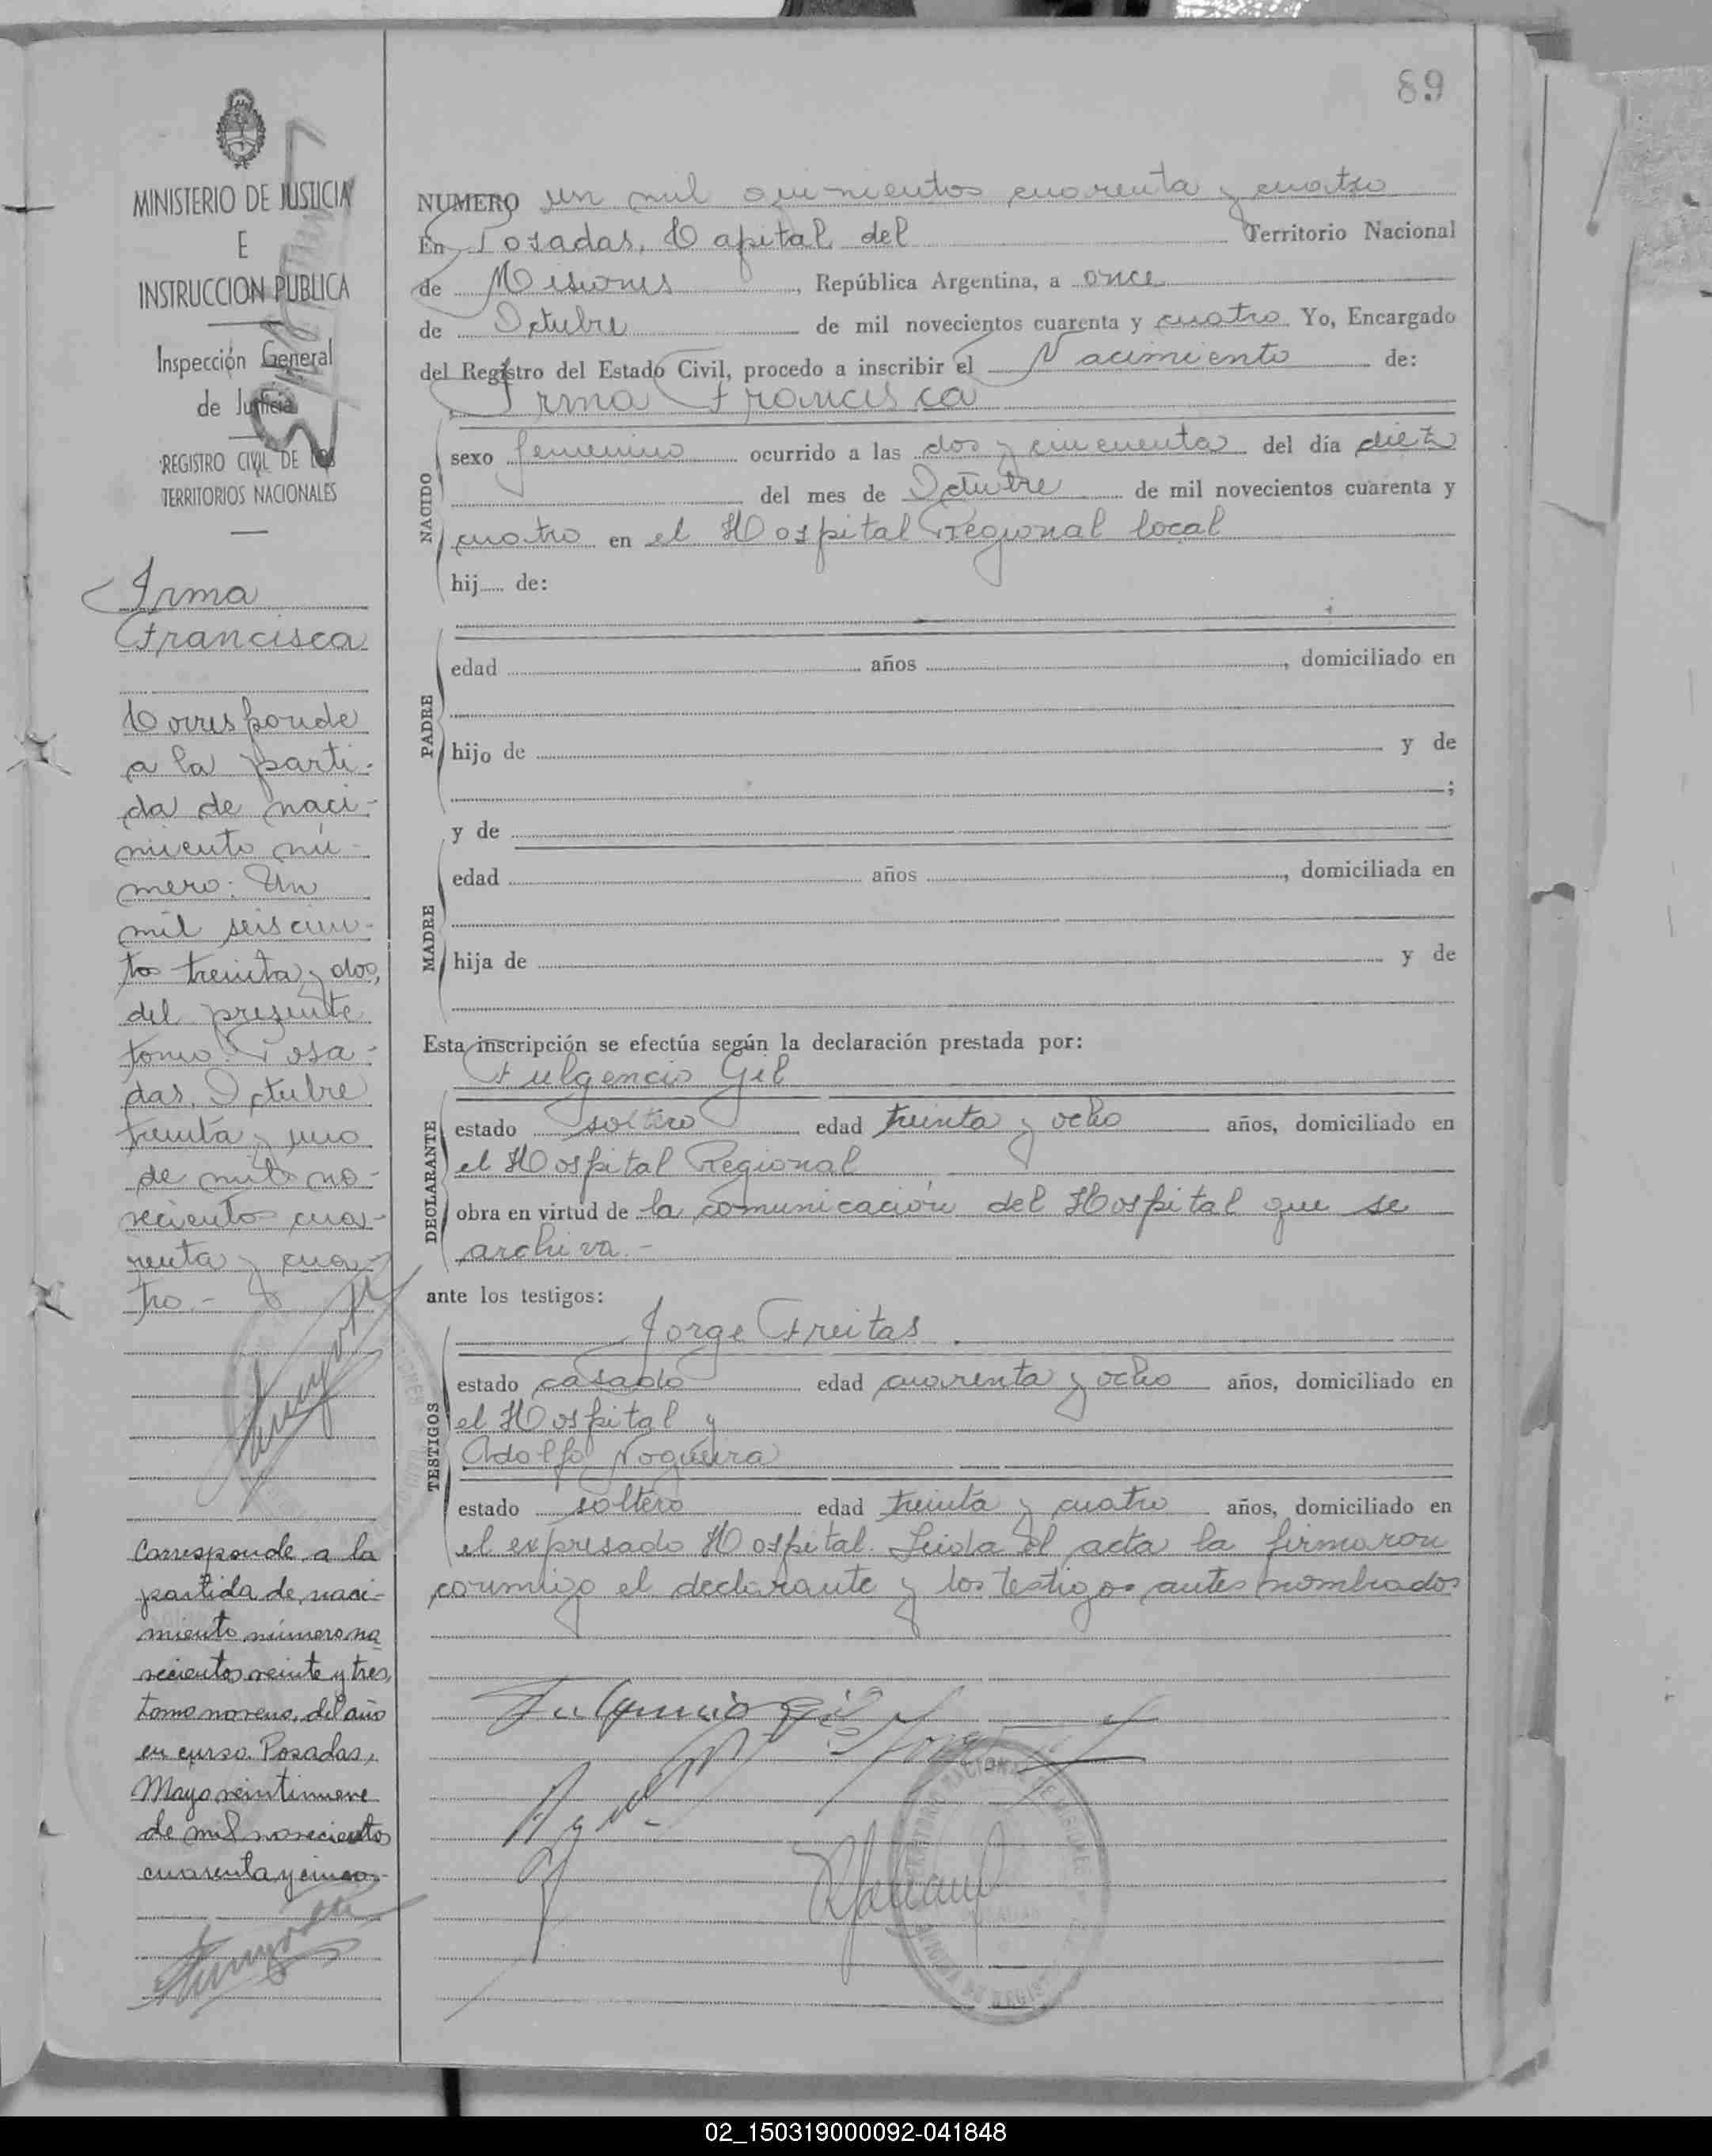 89
MINISTERIO DE JUSTICIA
E
INSTRUCCION PUBLICA
Inspección General
de Justicia
REGISTRO CIVIL DE LOS
TERRITORIOS NACIONALES
Irma
Francisca
Corresponde
a la parti-
da de naci-
miento nú-
mero: Un
mil seiscien-
tos treinta y dos,
del presente
tomo. Posa-
das, Octubre
treinta y uno
de mil no-
vecientos cua-
renta y cua-
tro.-
Corresponde a la
partida de naci-
miento número no
vecientos veinte y tres,
tomo noveno, del año
en curso. Posadas,
Mayo veintinueve
de mil novecientos
cuarenta y cinco.-
NUMERO un mil quinientos cuarenta y cuatro
En Posadas, Capital del Territorio Nacional
de Misiones, República Argentina, a once
de Octubre de mil novecientos cuarenta y cuatro Yo, Encargado
del Registro del Estado Civil, procedo a inscribir el Nacimiento de:
Irma Francisca
NACIDO
sexo femenino ocurrido a las dos y cincuenta del día diez
del mes de Octubre de mil novecientos cuarenta y
cuatro en el Hospital Regional local
hij de:
PADRE
edad años , domiciliado en
hijo de y de
;
y de
MADRE
edad años , domiciliada en
hija de y de
Esta inscripción se efectúa según la declaración prestada por:
Fulgencio Gil
DECLARANTE
estado soltero edad treinta y ocho años, domiciliado en
el Hospital Regional
obra en virtud de la comunicación del Hospital que se
archiva.-
ante los testigos:
Jorge Freitas
TESTIGOS
estado casado edad cuarenta y ocho años, domiciliado en
el Hospital y
Adolfo Nogueira
estado soltero edad treinta y cuatro años, domiciliado en
el expresado Hospital. Leida el acta la firmaron
conmigo el declarante y los testigos antes nombrados
Fulgencio Gil
02_150319000092-041848